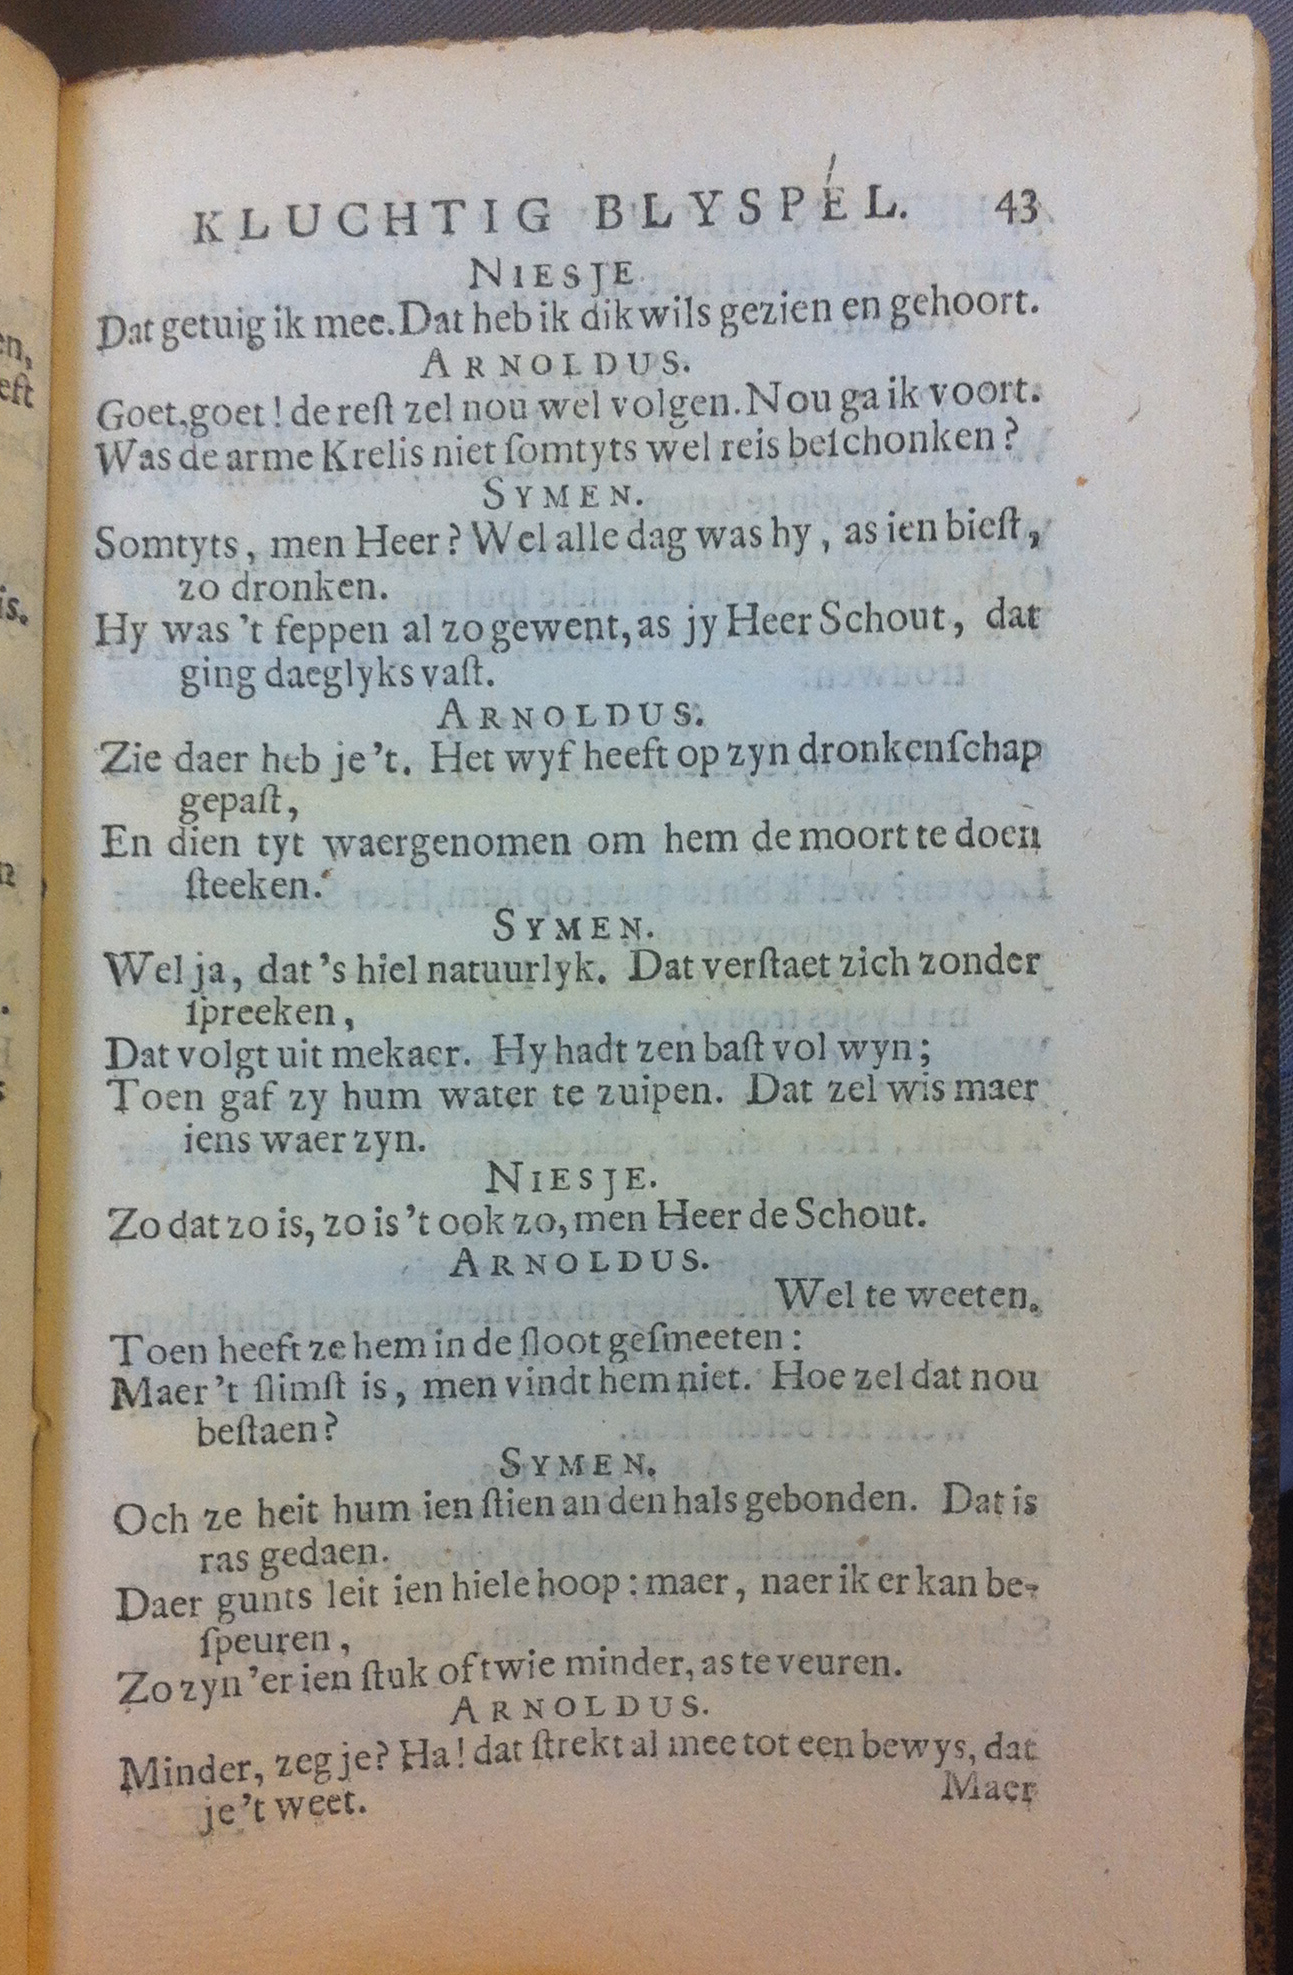 KLUCHTIG BLYSPEL. 43
NIESJE
Dat getuig ik mee. Dat heb ik dikwils gezien en gehoort.
ARNOLDUS.
Goet, goet! de reſt zel nou wel volgen. Nou ga ik voort.
Was de arme Krelis niet ſomtyts wel reis beſchonken?
SYMEN.
Somtyts, men Heer? Wel alle dag was hy, as ien bieſt,
zo dronken.
Hy was 't feppen al zo gewent, as jy Heer Schout, dat
ging daeglyks vaſt.
ARNOLDUS.
Zie daer heb je 't. Het wyf heeft op zyn dronkenſchap
gepaſt,
En dien tyt waergenomen om hem de moort te doen
ſteeken.
SYMEN.
Wel ja, dat 's hiel natuurlyk. Dat verſtaet zich zonder
ſpreeken,
Dat volgt uit mekaer. Hy hadt zen baſt vol wyn;
Toen gaf zy hum water te zuipen. Dat zel wis maer
iens waer zyn.
NIESJE.
Zo dat zo is, zo is 't ook zo, men Heer de Schout.
ARNOLDUS.
Wel te weeten.
Toen heeft ze hem in de ſloot geſmeeten:
Maer 't ſlimſt is, men vindt hem niet. Hoe zel dat nou
beſtaen?
SYMEN.
Och ze heit hum ien ſtien an den hals gebonden. Dat is
ras gedaen.
Daer gunts leit ien hiele hoop: maer, naer ik er kan be-
ſpeuren,
Zo zyn 'er ien ſtuk of twie minder, as te veuren.
ARNOLDUS.
Minder, zeg je? Ha! dat ſtrekt al mee tot een bewys, dat
je 't weet.
Maer
en,
eft
is.
n